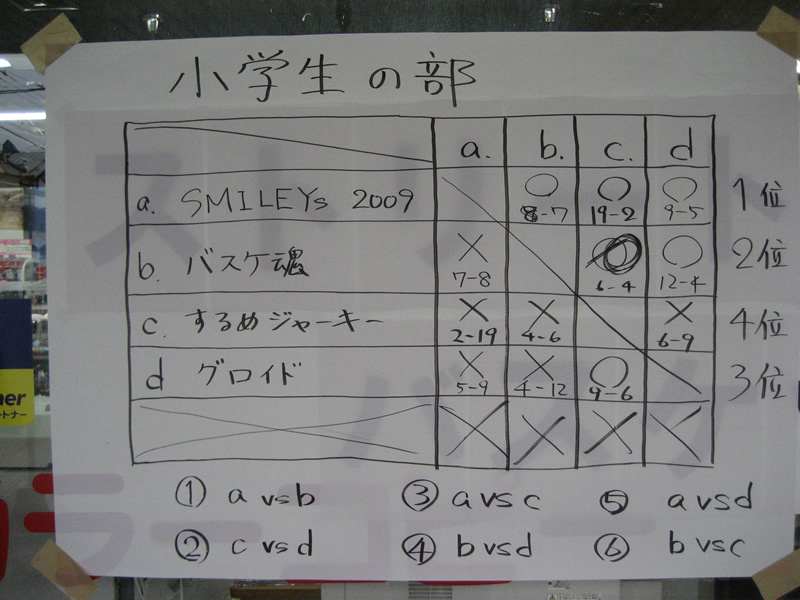 小学生の部
a. b. c. d
a. SMILEYs 2009 ○ ○ ○ 1位
8-7 19-2 9-5
b. バスケ魂 × ○ ○ 2位
7-8 6-4 12-4
c. するめジャーキー × × × 4位
2-19 4-6 6-9
d グロイド × × ○ 3位
5-9 4-12 9-6
① a vs b ③ a vs c ⑤ a vs d
② c vs d ④ b vs d ⑥ b vs c